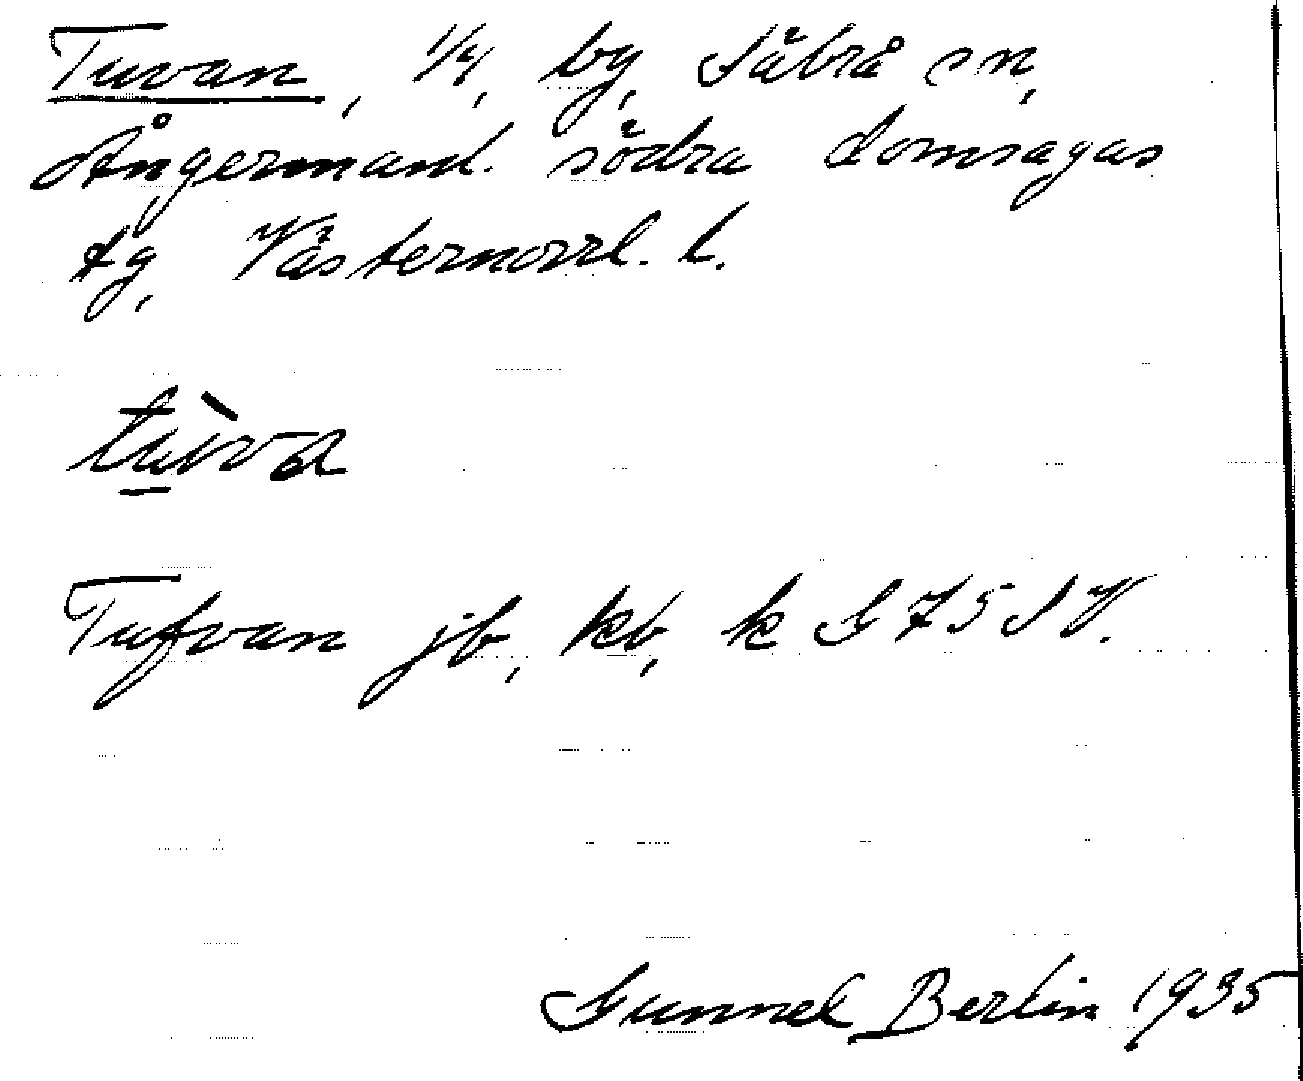 Tuvan, 1/4, by, Säbrå sn,
Ångermanl. södra domsagas
tg, Västernorrl. l.
tùva
Tufvan jb, kb, k G 75 S V.
Gunnel Berlin 1935